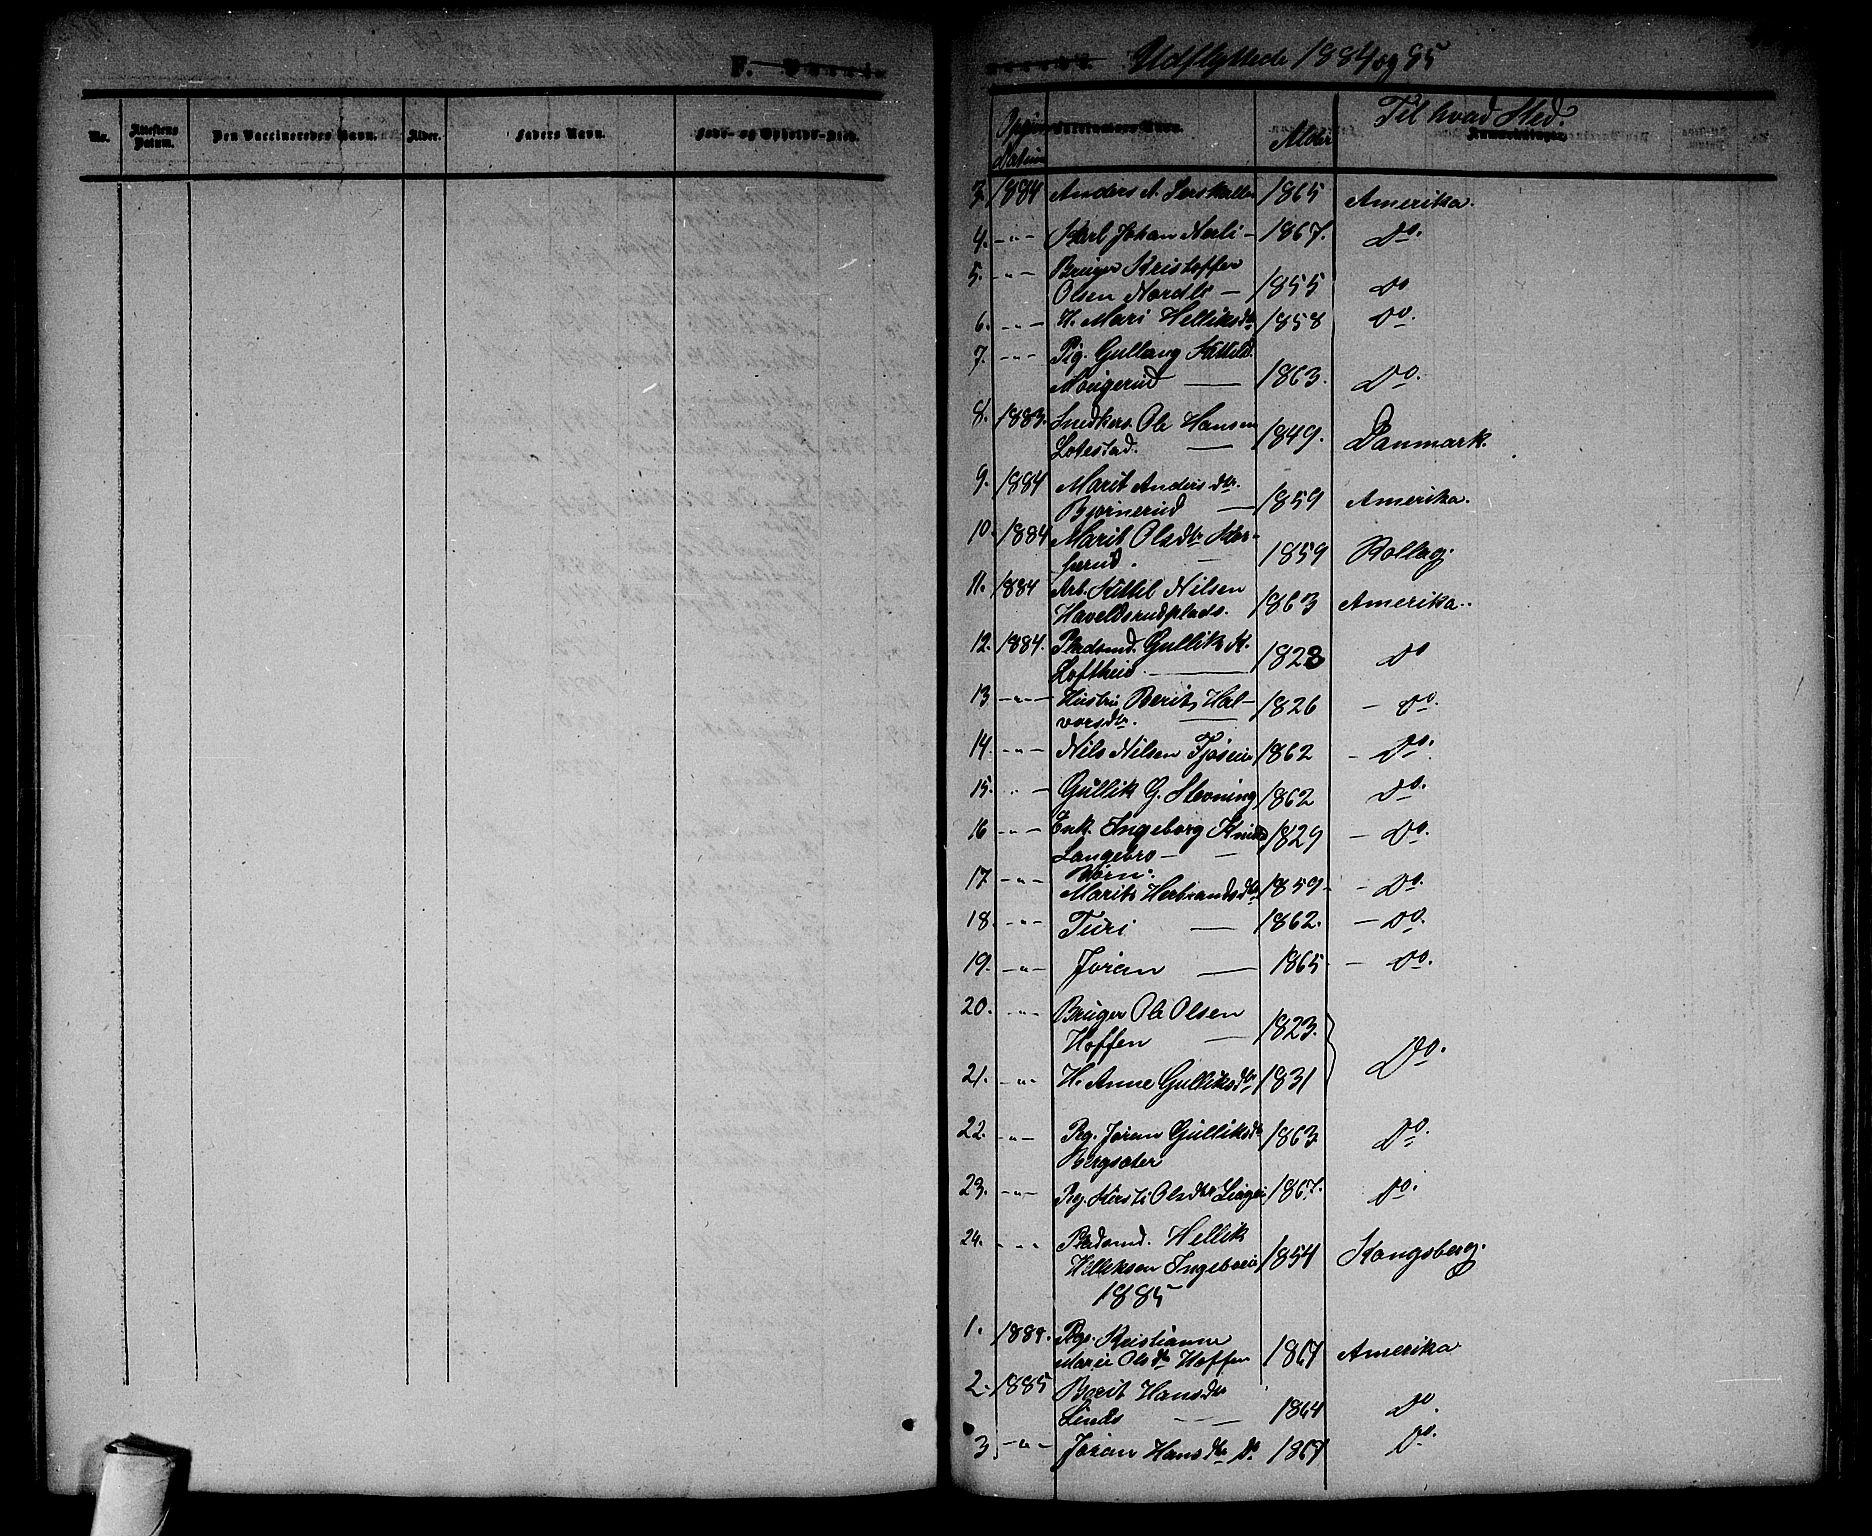 No. Attestens Datum. Den Vaccineredes Navn. Alder. Faders Navn. Føde- og Opholds-Sted.
Udflyttede 1884 og 85
Alder Til hvad Sted.
Anmærkninger.
3. 1884 Anders A. 1865 Amerika.
4. -"- Karl Johan Nerli - 1867. Do.
5. -"- Bruger Kristoffer
Olsen Nordli - 1855 Do
6. -"- H. Mari Helliksdtr 1858 Do.
7. -"- Pig. Gullaug Kittilsd.
Mougerud - 1863. Do.
8. 1883. Snedkers. Ole Hansen
Lotestad. - 1849. Danmark.
9. 1884 Marit Andersdtr.
Bjørnerud - 1859 Amerika.
10. 1884 Marit Olsdtr
- 1859 Rollag.
11. 1884 Arb. Kittil Nilsen
Haveldsrudplads. 1863 Amerika.
12. 1884. Pladsmd. Gullik K.
Loftheid - 1828 Do
13 -"- Hustru Berit Hal-
vorsdtr. - 1826 - Do.
14. -"- Nils Nilsen 1862 - Do.
15. -"- Gullik G. Stevning 1862 Do.
16 -"- Enk. Ingeborg Knutsd
Langebro - 1829 - Do.
17 -"- Børn:
Marit Herbrandsdtr 1859 - Do.
18. -"- Turi - 1862. - Do.
19. -"- Jøran - 1865 - Do.
20. -"- Bruger Ole Olsen
Hoffen - 1823.
21. -"- H. Anne Gulliksdtr 1831 Do.
22. -"- Pig. Jøran Gulliksdtr 1863 Do.
Bergsæter
23. -"- Pig. Kirsti Olsdtr 1867. Do.
24. -"- Pladsmd. Hellik
Helliksen 1854 Kongsberg.
1885
1. 1884. Pige. Kristianne
Marie Olsdtr Hoffen 1867 Amerika
2. 1885 Berit Hansdtr
Linds - 1864 Do.
3 -"- Jøran Hansdtr Do 1867 Do.